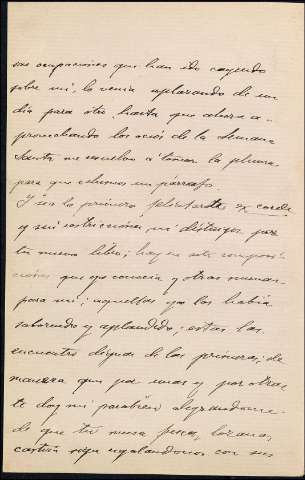 sas ocupaciones que han ido cayendo
sobre mí, lo venía aplazando de un
día para otro, hasta que ahora a-
provechando los ocios de la Semana
Santa me resuelvo á tomar la pluma
para que echemos un párrafo.
Y sea lo primero felicitarte ex corde
y sin restricciones ni distingos por
tu nuevo libro; hay en este composi-
ciones que yo conocía y otras nuevas
para mí; aquellas ya las había
saboreado y aplaudido; estas las
encuentro dignas de las primeras; de
manera que por unas y por otras
te doy mi parabién alegrándome
de que tu musa fresca, lozana,
castiza siga regalándonos con sus